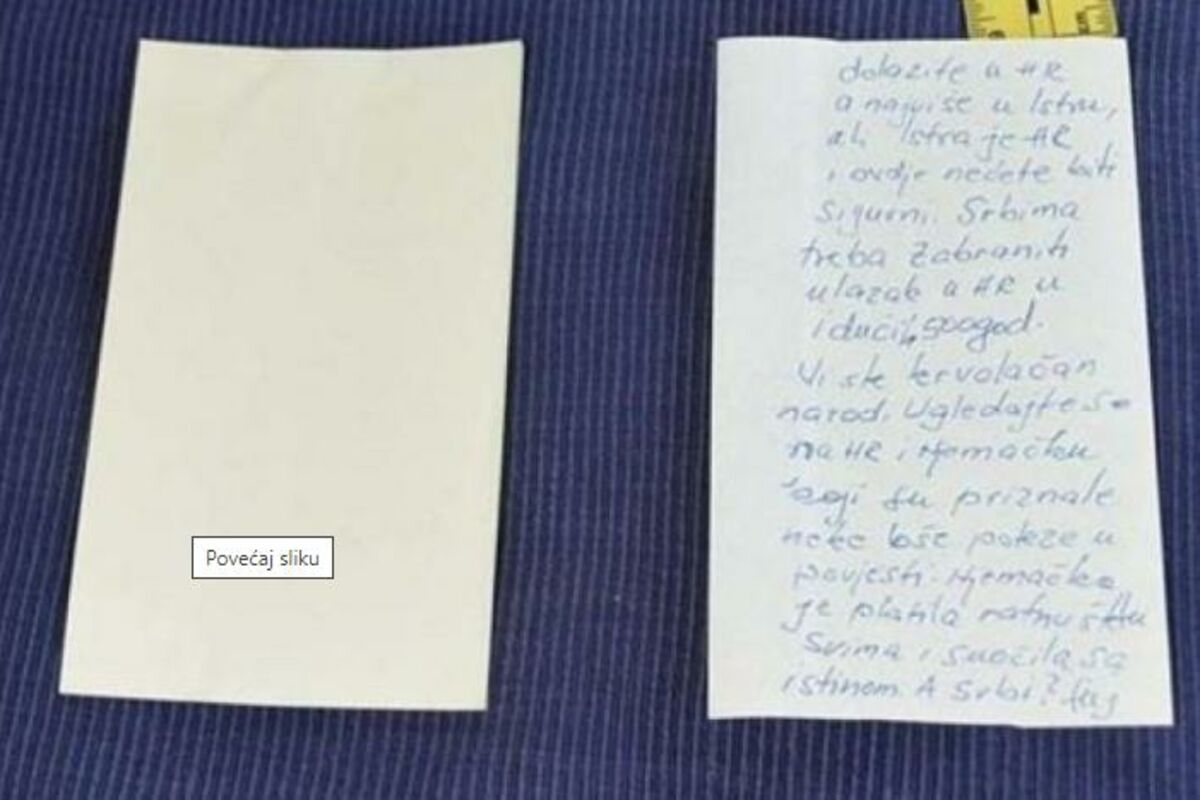 dolazite u HR
a najviše u Istru,
ali Istra je HR
i ovdje nećete biti
sigurni. Srbima
treba zabraniti
ulazak u HR u
idućih 500 god.
Vi ste krvoločan
narod. Ugledajte se
na HR i Njemačku
koji su priznale
neke loše poteze u
povjesti. Njemačka
je platila ratnu štetu
svima i suočila sa
istinom. A Srbi?
Povećaj sliku